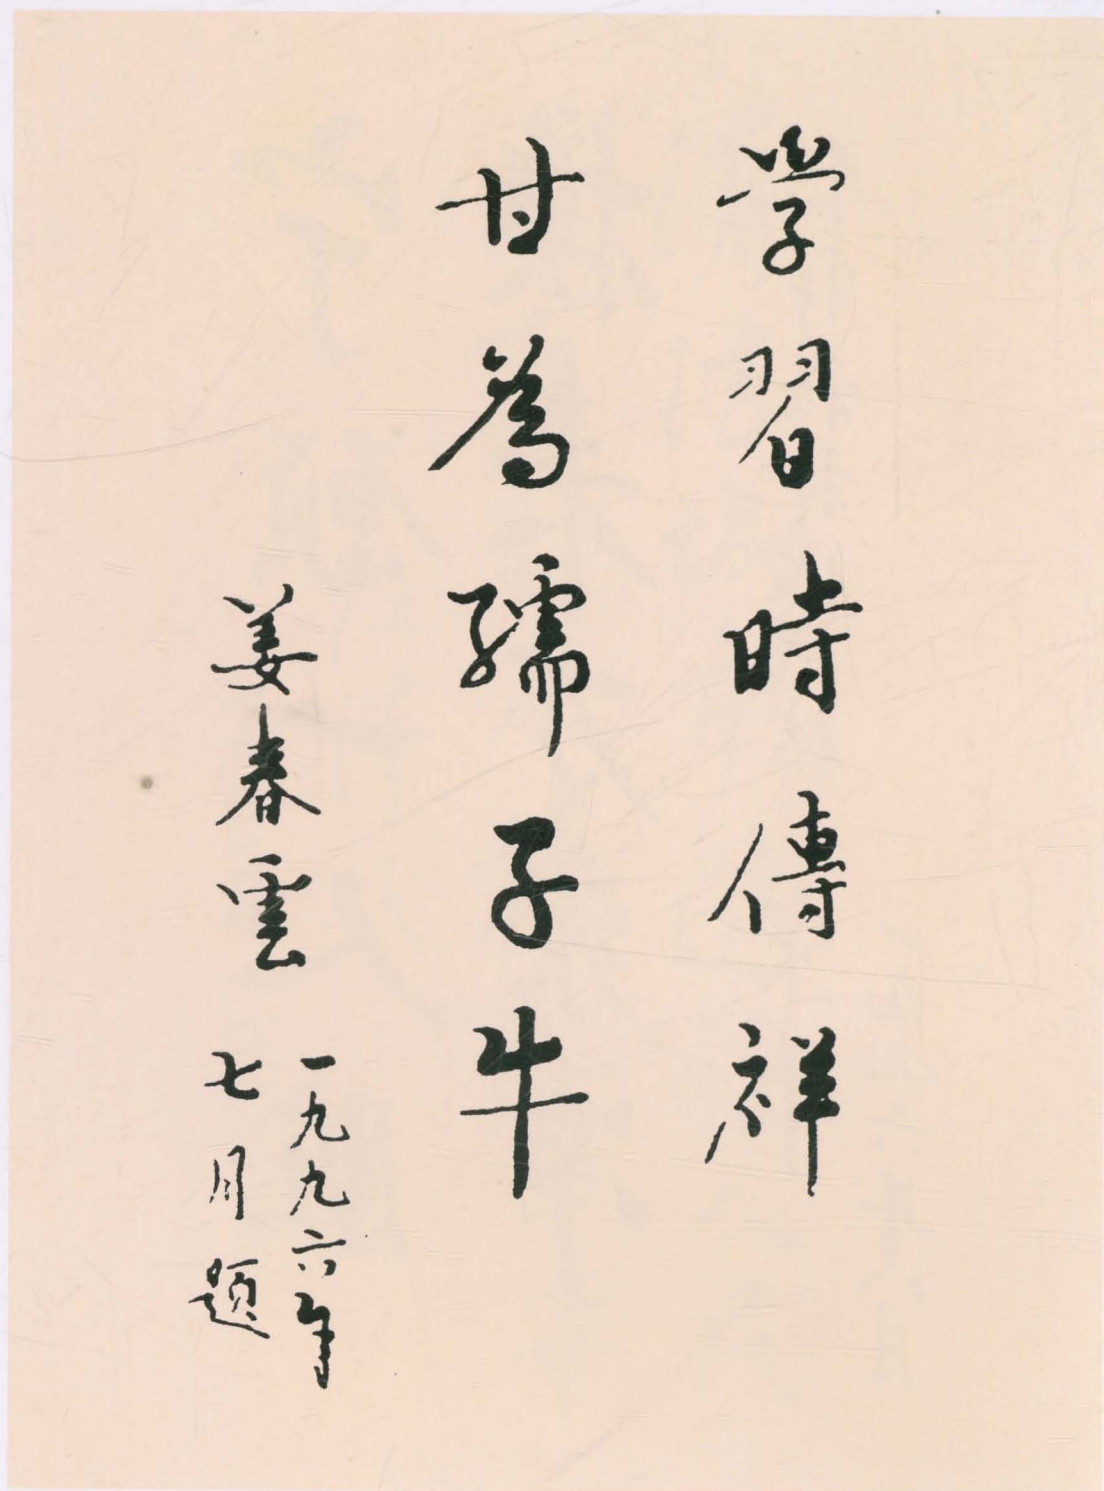 學習時傳祥
甘為孺子牛
姜春雲
一九九六年
七月題